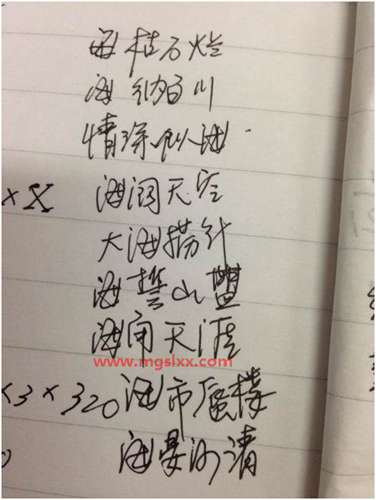 海枯石烂
海纳百川
情深似海.
×X 海阔天空
大海捞针
海誓山盟
海角天涯
www.mgslxx.com
×3×320 海市蜃楼
海晏河清